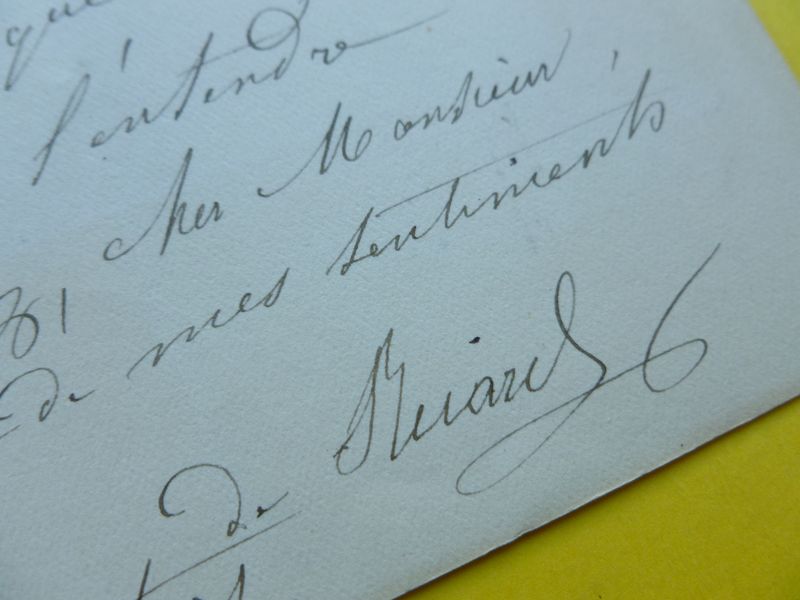 que
l'entendre
cher Monsieur,
de mes sentiments
de